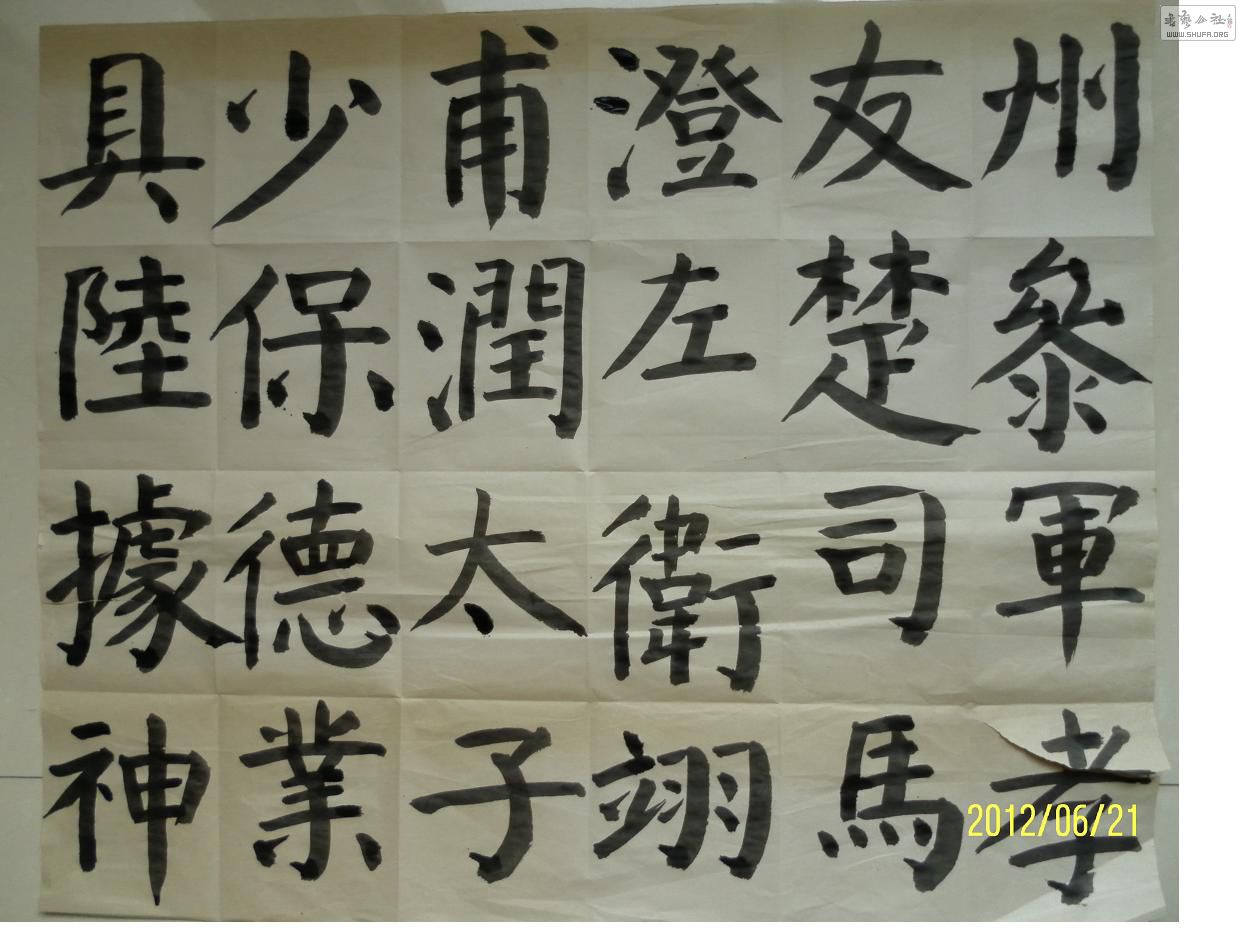 州參軍孝
友楚司馬
澄左衛翊
甫潤太子
少保德業
具陸據神
2012/06/21
书艺公社
WWW.SHUFA.ORG